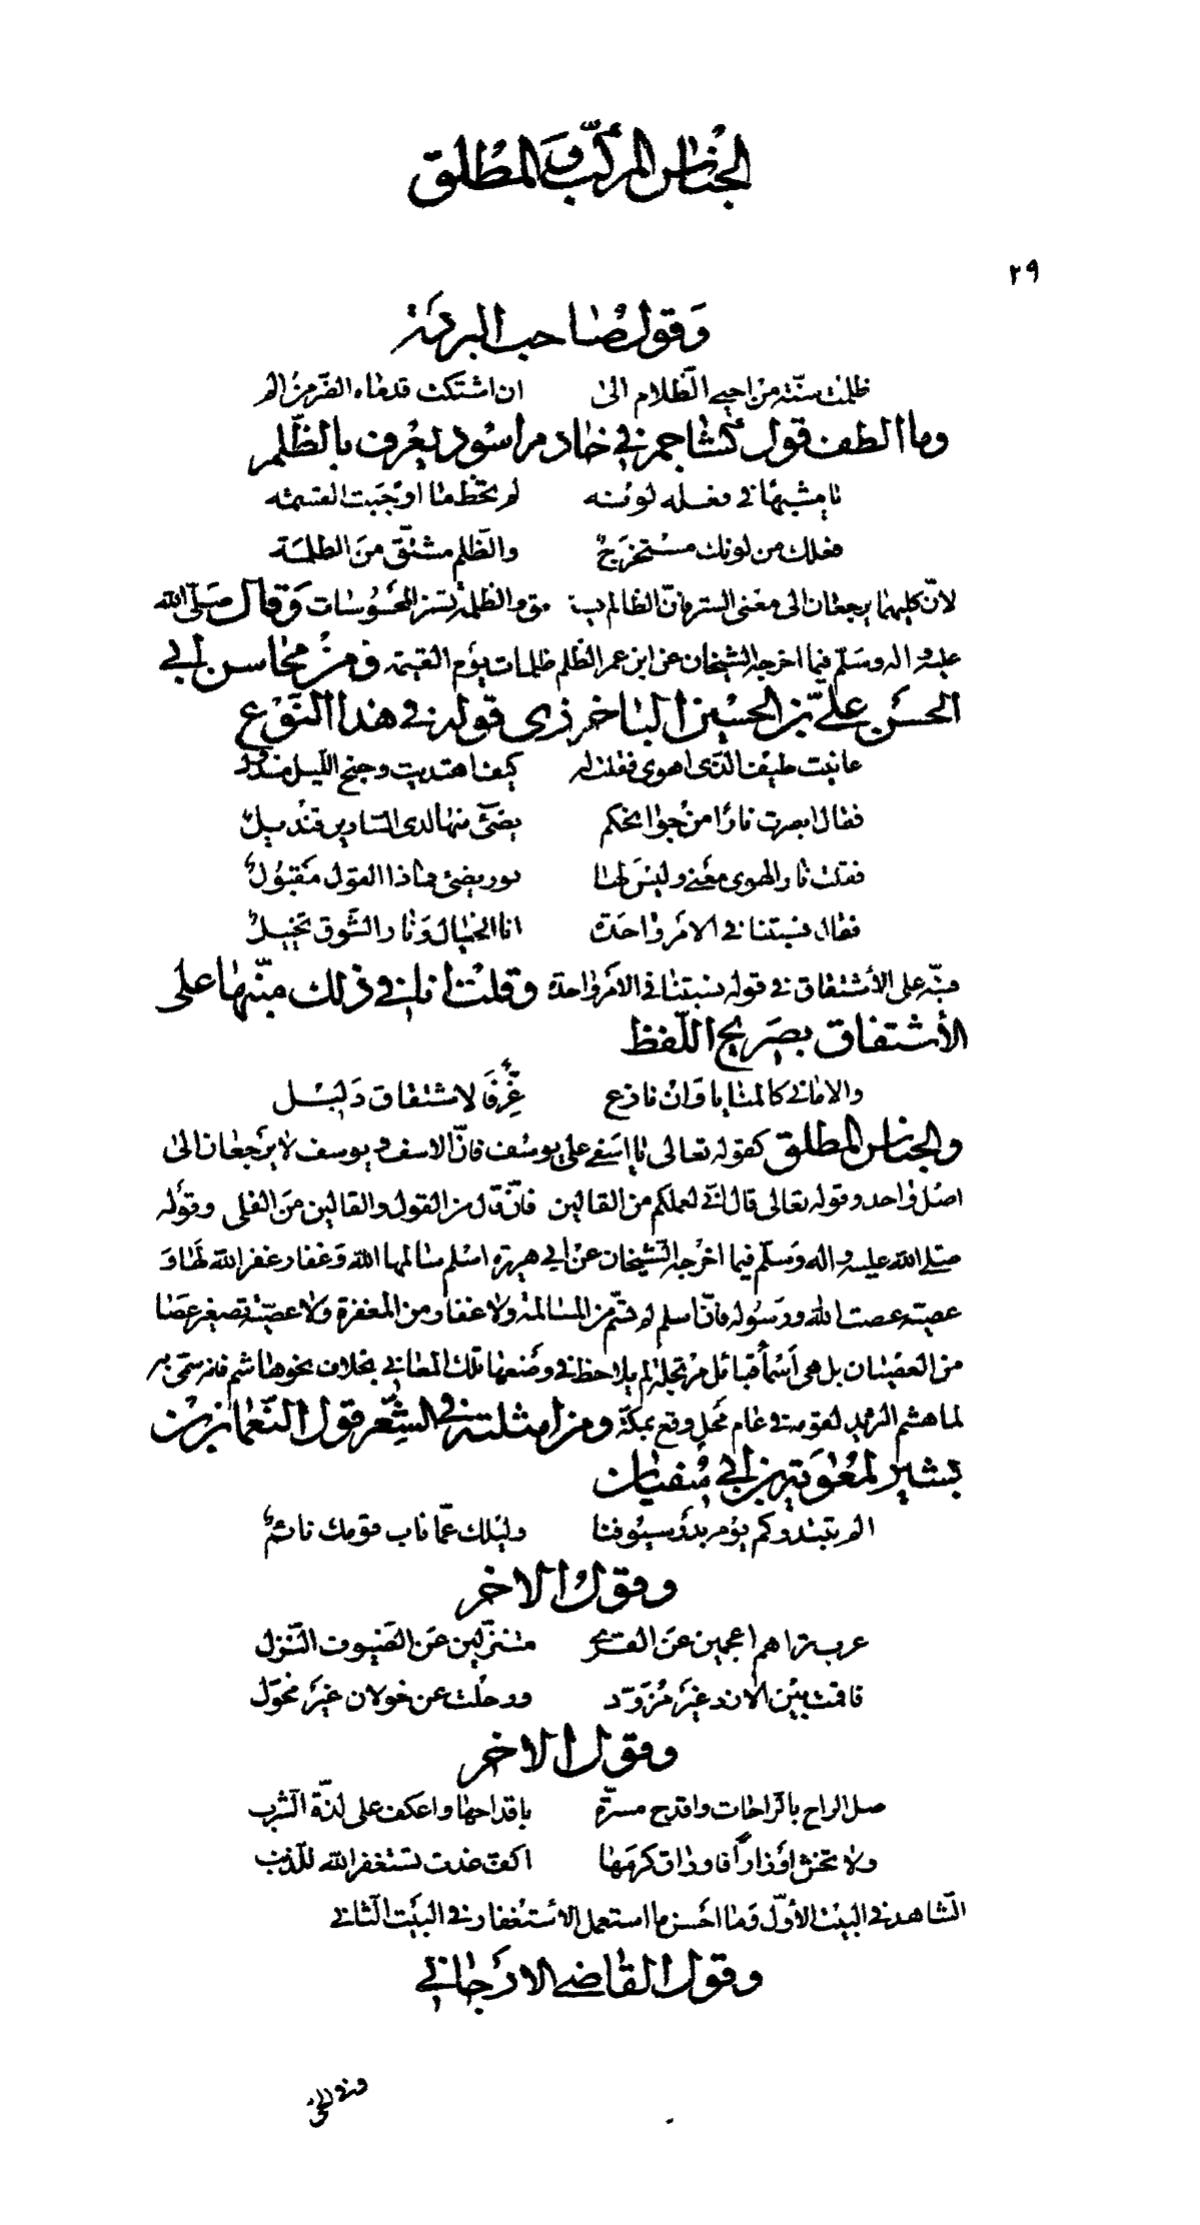 الجناس المركّب والمطلق
٢٩
وَقول صاحب البردة
ظلمت سنّة من احيى الظّلام الى ان اشتكت قدماه الضّرّ من الم
وما الطف قول كشاجم في خادم اسود يعرف بالظّلم
يا مشبها في فعله لونه لم تحظ ما اوجبت القسمه
فعلك من لونك مستخرجٌ والظّلم مشتقّ من الظلمة
لانّ كليهما يرجعان الى معنى الستر فانّ الظالم والظلمة تستر المحسوسات وَقال صَلّى الله
عليه واله وسَلّم فيما اخرجه الشيخان عن ابن عمر الظّلم ظلمات يوم القيمة ومن محاسن ابي
الحسَن عليّ بن الحسين الباخرزى قوله في هذا النّوْع
عاتبت طيف الذّى اهوى فقلت له كيف اهتديت وجنح اللّيل مسدول
فقال ابصرت نارًا من جوانحكم يضئ منها لدى السّارين قنديل
فقلت نار الهوى معنى وليسَ لها نور يضئ فماذا القول مَقبُولُ
فقال نسبتنا في الامر واحدة انا الخيال وَنار الشّوق تخييل
فنبّه على الأشتقاق في قوله نسبتنا في الامر واحدة وقلت انا في ذلك منبّها على
الأشتقاق بصَريح اللّفظ
والامانى كالمنايا وَان نازع غِرٌّ فالاشتقاق دَليل
والجناس المطلق كقوله تعالى يا اسَفى على يوسُف فانّ الاسف ويوسف لا يرجعان الى
اصل واحد وقوله تعالى قال انّى لعملكم من القالين فانّ قال من القول والقالين من القلى وقوله
صَلى الله عليه واله وَسَلّم فيما اخرجه الشيخان عن ابي هريرة اسلم سالمها الله وَغفار غفر الله لها وَ
عصيّة عصت الله ورَسُوله فانّ اسلم لم يشتقّ من المسالمة ولا غفار من المغفرة ولا عصيّة تصغير عصا
من العصيان بل هى اسمأ قبائل مرتجلة لم يلاحظ في وضعها تلك المعاني بخلاف نحو هاشم فانه سمّى به
لما هشم الثريد لقومه في عام محل وقع بمكّة ومن امثلته في الشّعر قول النّعمان بن
بشير لمعوية بن ابي سفيان
الم تبتدركم يوم بدر سيوفنا وليلك عمّا ناب قومك نائمُ
وقول الاخر
عرب تراهم اعجمين عن القرى متنزّلين عن الضّيوف النّزل
فاقمت بين الازد غيرَ مُزَوّد ورحلت عن خولان غيرَ مخوّل
وقول الاخر
صل الراح بالرّاحات واقدح مسرّة باقداحها واعكف على لذّة الشّرب
ولا تخش اوزاراً فاوراق كرمها اكفّ غدت تستغفر الله للذّنب
الشّاهد في البيت الأوّل وَما احسن ما استعمل الاستغفار في البيت الثاني
وقول القاضي الارجانيّ